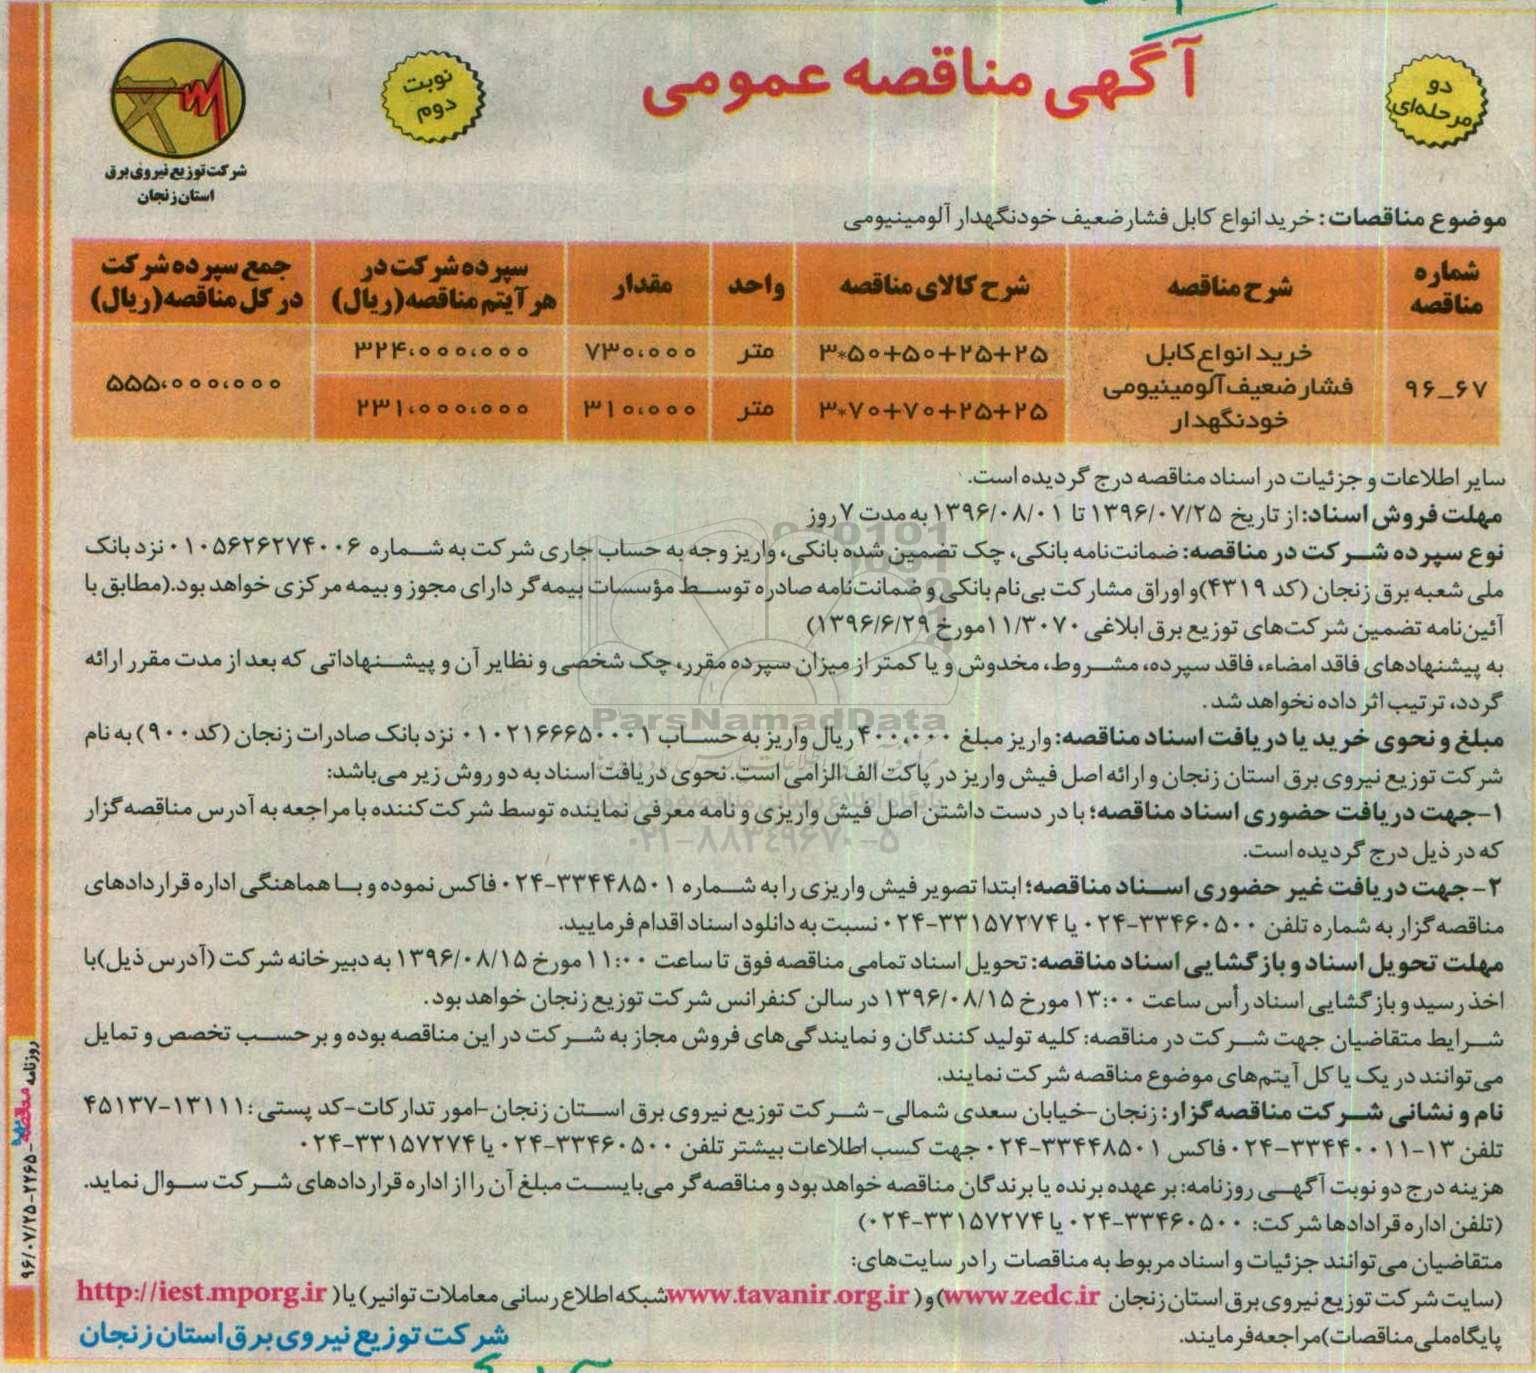 آگهی مناقصه عمومی
دو
مرحله‌ای
نوبت
دوم
شرکت توزیع نیروی برق
استان زنجان
موضوع مناقصات: خرید انواع کابل فشار ضعیف خودنگهدار آلومینیومی
شماره مناقصه | شرح مناقصه | شرح کالای مناقصه | واحد | مقدار | سپرده شرکت در هر آیتم مناقصه (ریال) | جمع سپرده شرکت در کل مناقصه (ریال)
۹۶_۶۷ | خرید انواع کابل فشار ضعیف آلومینیومی خودنگهدار | ۳*۵۰+۵۰+۲۵+۲۵ | متر | ۷۳۰،۰۰۰ | ۳۲۴،۰۰۰،۰۰۰ | ۵۵۵،۰۰۰،۰۰۰
۳*۷۰+۷۰+۲۵+۲۵ | متر | ۳۱۰،۰۰۰ | ۲۳۱،۰۰۰،۰۰۰
سایر اطلاعات و جزئیات در اسناد مناقصه درج گردیده است.
مهلت فروش اسناد: از تاریخ ۱۳۹۶/۰۷/۲۵ تا ۱۳۹۶/۰۸/۰۱ به مدت ۷ روز
نوع سپرده شرکت در مناقصه: ضمانت‌نامه بانکی، چک تضمین شده بانکی، واریز وجه به حساب جاری شرکت به شماره ۰۱۰۵۶۲۶۲۷۴۰۰۶ نزد بانک
ملی شعبه برق زنجان (کد ۴۳۱۹) و اوراق مشارکت بی‌نام بانکی و ضمانت‌نامه صادره توسط مؤسسات بیمه‌گر دارای مجوز و بیمه مرکزی خواهد بود.(مطابق با
آئین‌نامه تضمین شرکت‌های توزیع برق ابلاغی ۱۱/۳۰۷۰ مورخ ۱۳۹۶/۶/۲۹)
به پیشنهادهای فاقد امضاء، فاقد سپرده، مشروط، مخدوش و یا کمتر از میزان سپرده مقرر، چک شخصی و نظایر آن و پیشنهاداتی که بعد از مدت مقرر ارائه
گردد، ترتیب اثر داده نخواهد شد.
مبلغ و نحوی خرید یا دریافت اسناد مناقصه: واریز مبلغ ۴۰۰،۰۰۰ ریال واریز به حساب ۰۱۰۲۱۶۶۶۵۰۰۰۱ نزد بانک صادرات زنجان (کد ۹۰۰) به نام
شرکت توزیع نیروی برق استان زنجان و ارائه اصل فیش واریز در پاکت الف الزامی است. نحوی دریافت اسناد به دو روش زیر می‌باشد:
۱-جهت دریافت حضوری اسناد مناقصه؛ با در دست داشتن اصل فیش واریزی و نامه معرفی نماینده توسط شرکت‌کننده با مراجعه به آدرس مناقصه‌گزار
که در ذیل درج گردیده است.
۲- جهت دریافت غیر حضوری اسناد مناقصه؛ ابتدا تصویر فیش واریزی را به شماره ۰۲۴-۳۳۴۴۸۵۰۱ فاکس نموده و با هماهنگی اداره قراردادهای
مناقصه‌گزار به شماره تلفن ۰۲۴-۳۳۴۶۰۵۰۰ یا ۰۲۴-۳۳۱۵۷۲۷۴ نسبت به دانلود اسناد اقدام فرمایید.
مهلت تحویل اسناد و بازگشایی اسناد مناقصه: تحویل اسناد تمامی مناقصه فوق تا ساعت ۱۱:۰۰ مورخ ۱۳۹۶/۰۸/۱۵ به دبیرخانه شرکت (آدرس ذیل) با
اخذ رسید و بازگشایی اسناد رأس ساعت ۱۳:۰۰ مورخ ۱۳۹۶/۰۸/۱۵ در سالن کنفرانس شرکت توزیع زنجان خواهد بود.
شرایط متقاضیان جهت شرکت در مناقصه: کلیه تولید کنندگان و نمایندگی‌های فروش مجاز به شرکت در این مناقصه بوده و بر حسب تخصص و تمایل
می‌توانند در یک یا کل آیتم‌های موضوع مناقصه شرکت نمایند.
نام و نشانی شرکت مناقصه‌گزار: زنجان-خیابان سعدی شمالی- شرکت توزیع نیروی برق استان زنجان-امور تدارکات-کد پستی: ۱۳۱۱۱-۴۵۱۳۷
تلفن ۱۳-۳۳۴۴۰۰۱۱-۰۲۴ فاکس ۰۲۴-۳۳۴۴۸۵۰۱ جهت کسب اطلاعات بیشتر تلفن ۰۲۴-۳۳۴۶۰۵۰۰ یا ۰۲۴-۳۳۱۵۷۲۷۴
هزینه درج دو نوبت آگهی روزنامه: بر عهده برنده یا برندگان مناقصه خواهد بود و مناقصه‌گر می‌بایست مبلغ آن را از اداره قراردادهای شرکت سوال نماید.
(تلفن اداره قرادادها شرکت: ۰۲۴-۳۳۴۶۰۵۰۰ یا ۰۲۴-۳۳۱۵۷۲۷۴)
متقاضیان می‌توانند جزئیات و اسناد مربوط به مناقصات را در سایت‌های:
(سایت شرکت توزیع نیروی برق استان زنجان www.zedc.ir) و (www.tavanir.org.ir شبکه اطلاع رسانی معاملات توانیر) یا (http://iest.mporg.ir
پایگاه ملی مناقصات) مراجعه فرمایند.
شرکت توزیع نیروی برق استان زنجان
ParsNamadData
۰۲۱-۸۸۳۴۹۶۷۰-۵
روزنامه مناقصه -۲۲۶۵-۹۶/۰۷/۲۵